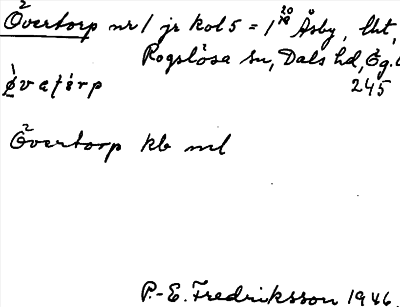 Övertorp nr 1 jr kol 5 = 1 20/19 Åsby, lht,
Rogslösa sn, Dals hd, Ög. l
245
Övertorp kb ml
P.-E. Fredriksson 1946.